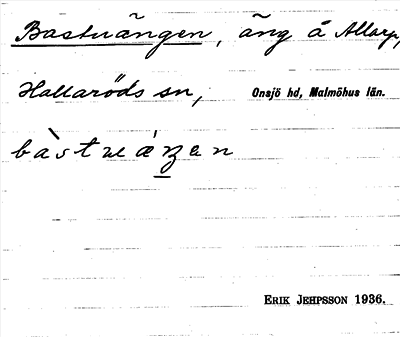 Bastuängen, äng å Allarp,
Hallaröds sn, Onsjö hd, Malmöhus län.
bàstuæ´ŋen
ERIK JEHPSSON 1936.